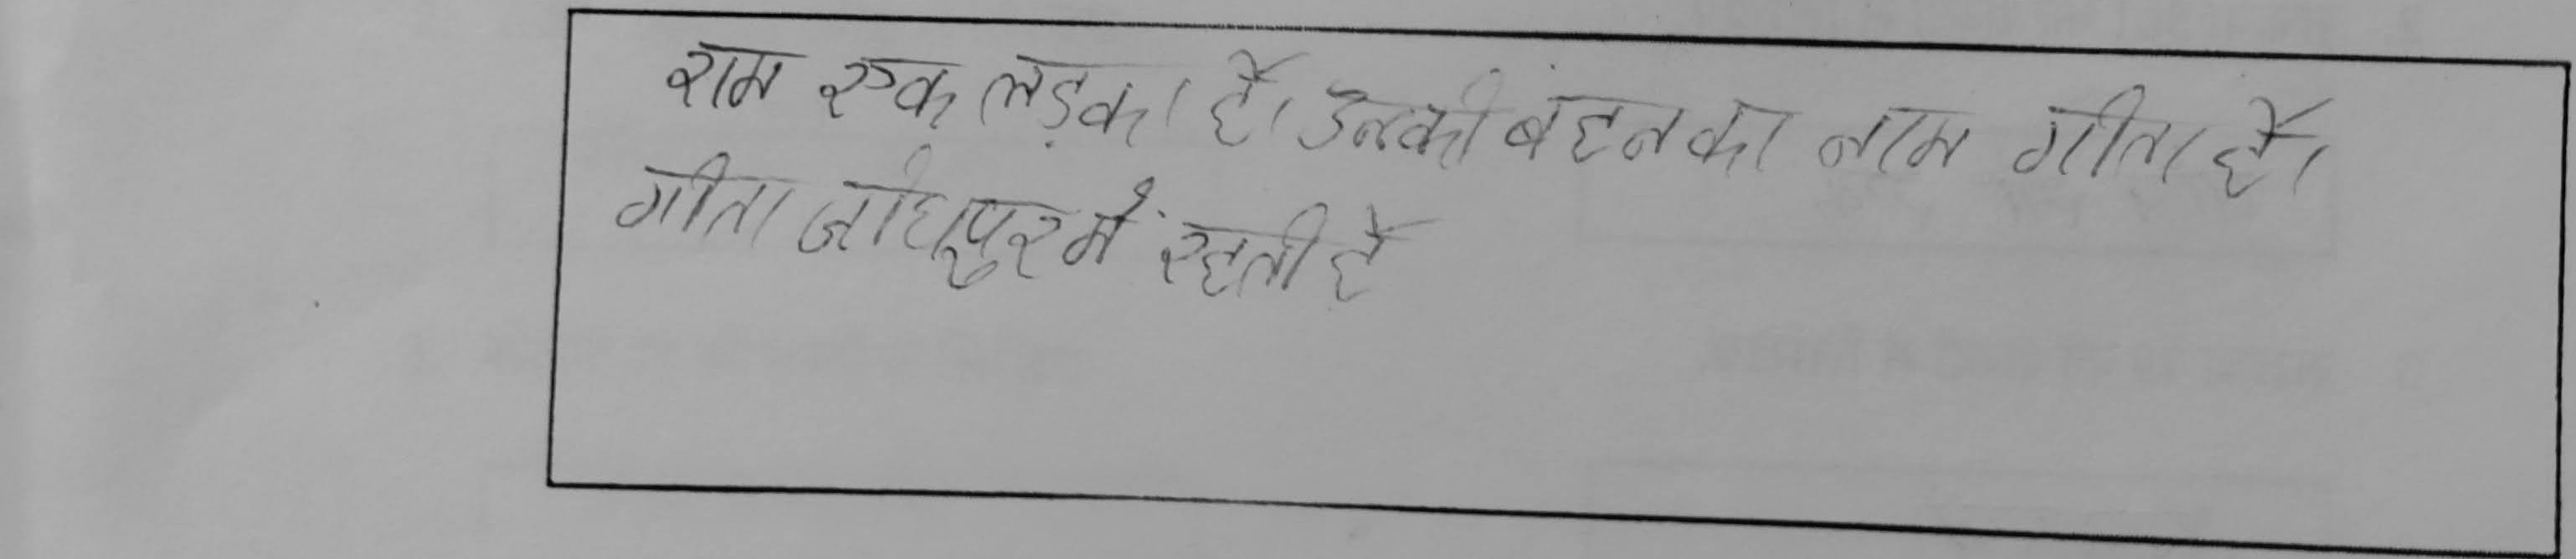 राम एक लड़का है। उनकी बहन का नाम गीता है।
गीता जोधपुर में रहती है